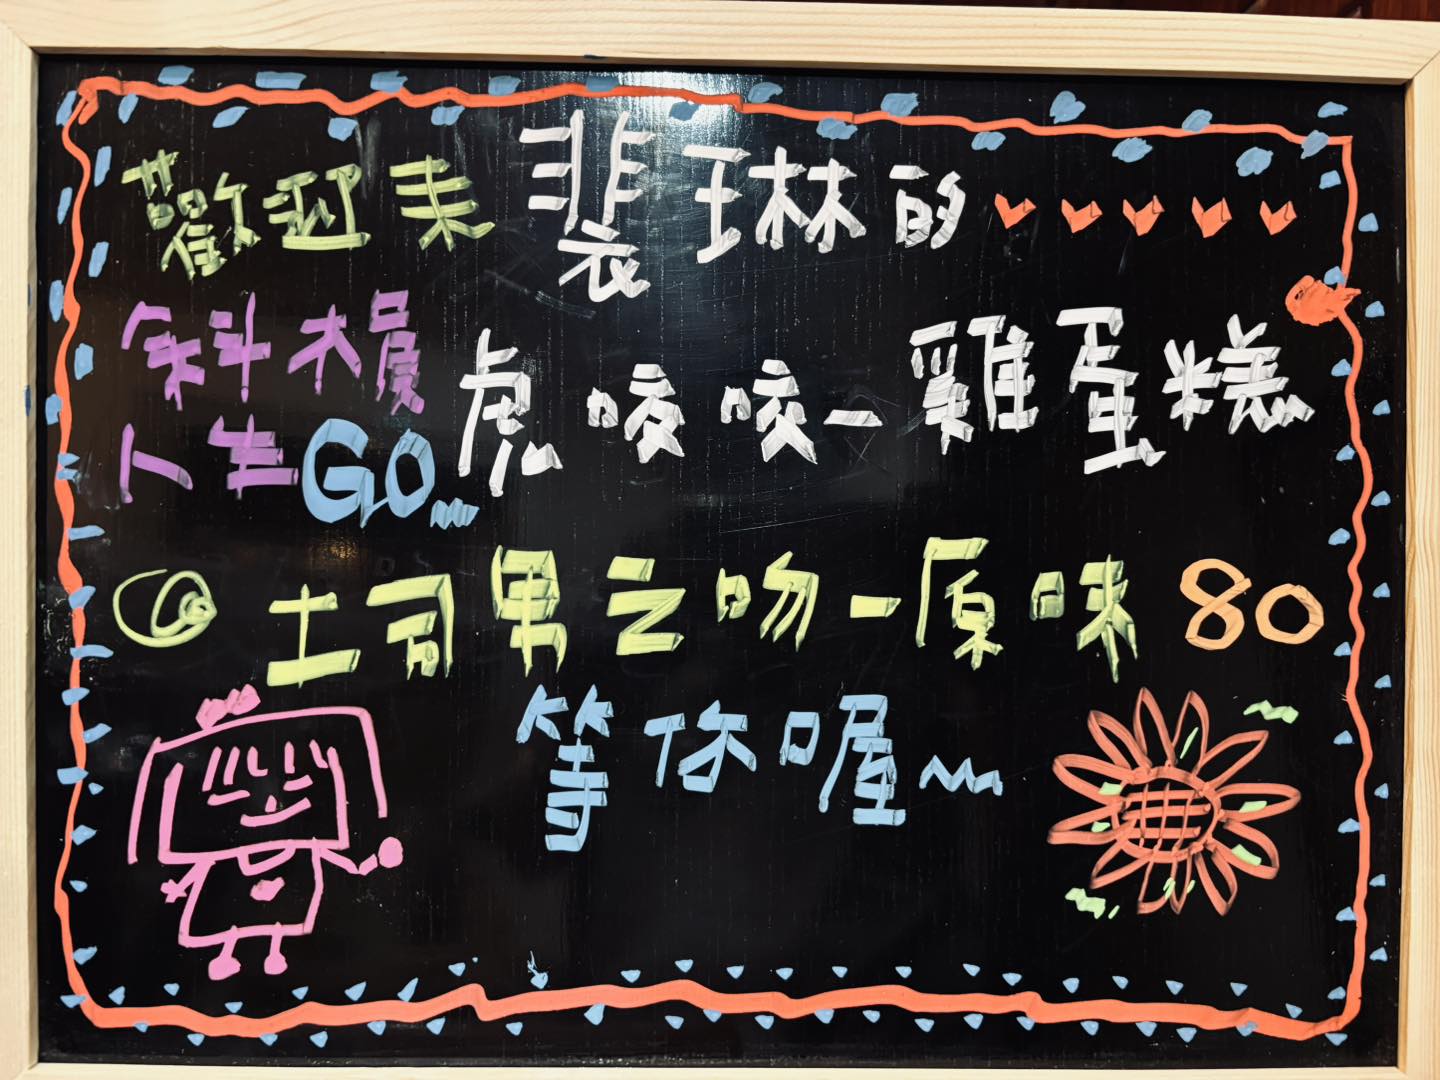 歡迎來裴琳的
斜槓
人生GO...
虎咬咬-雞蛋糕
土司男之吻-原味 80
等你喔~